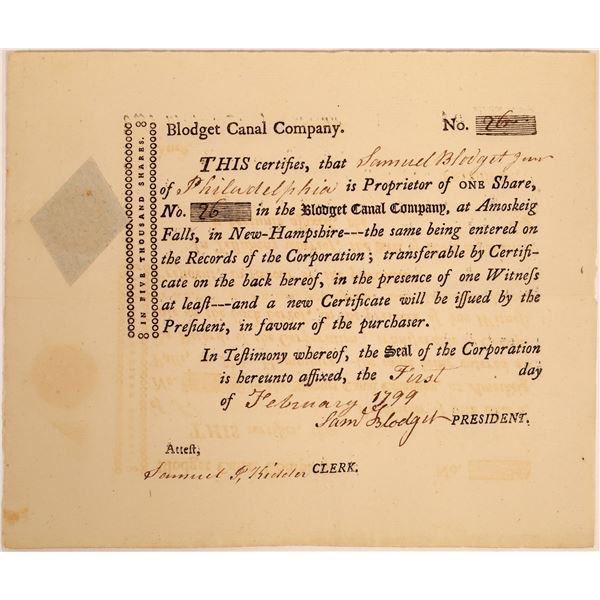 Blodget Canal Company. No. 26
THIS certifies, that Samuel Blodget Junr
of Philadelphia is Proprietor of ONE Share,
No. 26 in the Blodget Canal Company, at Amoskeig
Falls, in New-Hampshire---the same being entered on
the Records of the Corporation; transferable by Certifi-
cate on the back hereof, in the presence of one Witneſs
at leaſt---and a new Certificate will be iſſued by the
Preſident, in favour of the purchaser.
In Teſtimony whereof, the Seal of the Corporation
is hereunto affixed, the First day
of February 1799
Saml Blodget PRESIDENT.
Atteſt,
Samuel P. Kidder CLERK.
IN FIVE THOUSAND SHARES.